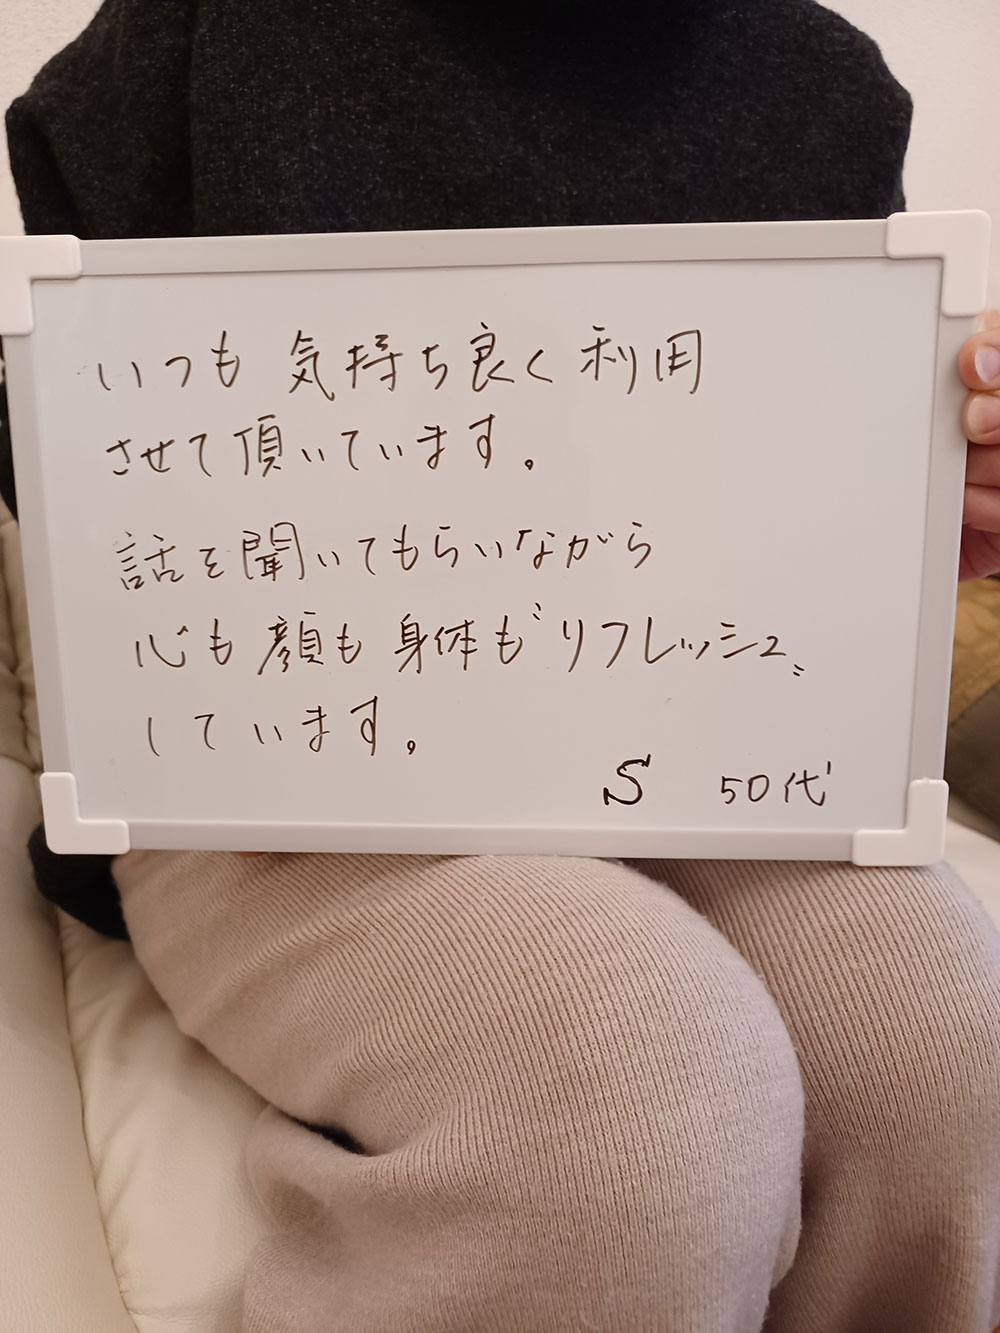 いつも気持ち良く利用
させて頂いています。
話を聞いてもらいながら
心も顔も身体も〝リフレッシュ〟
しています。
S 50代